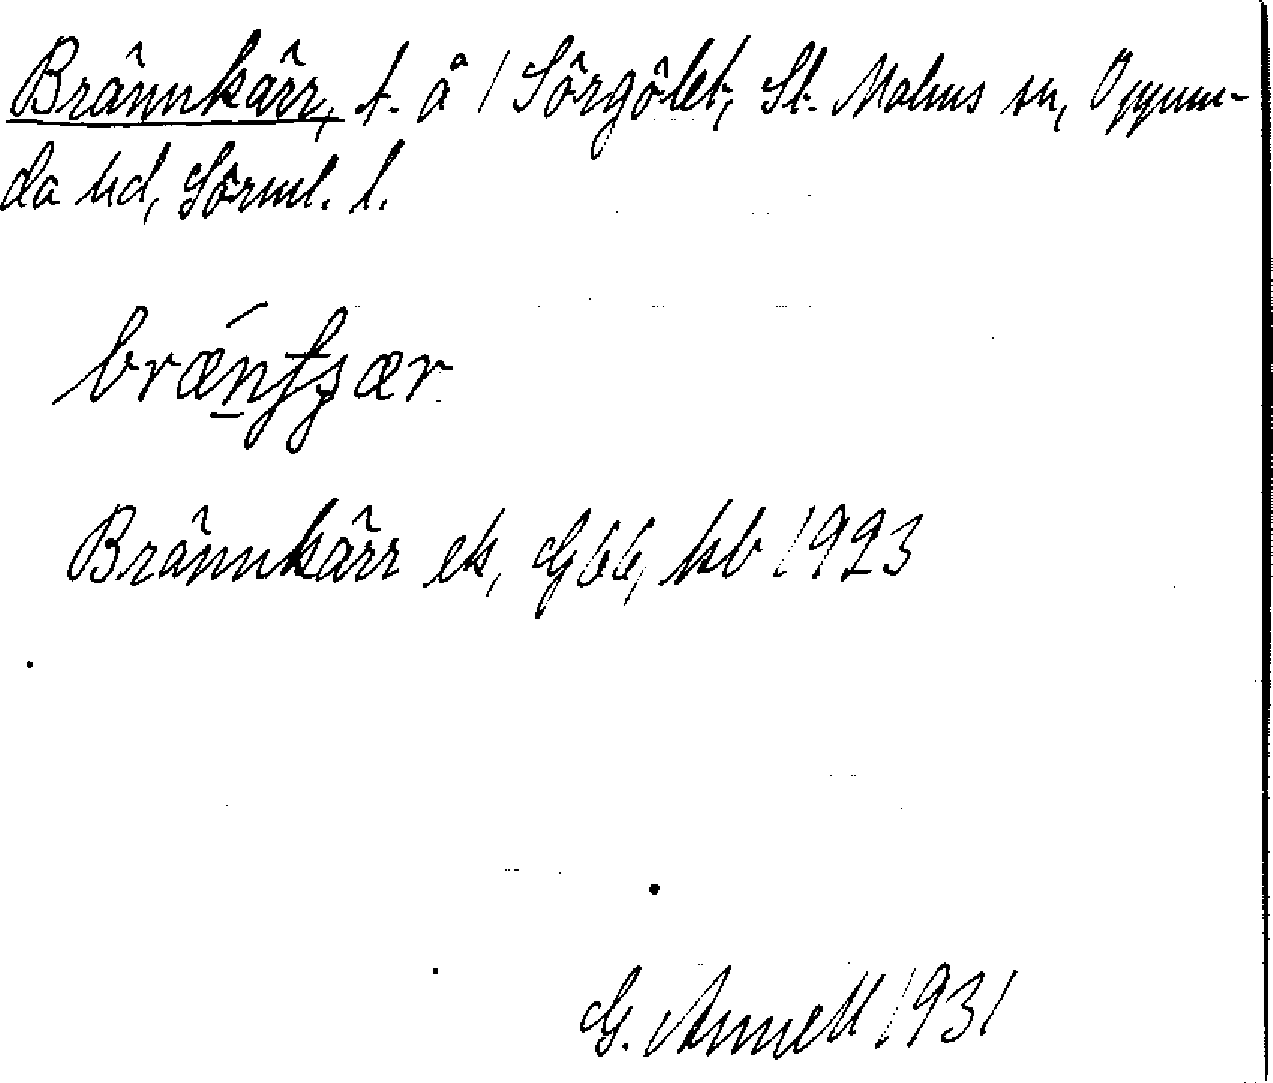 Brännkärr, t. å / Sörgölet, St. Malms sn, Oppun-
da hd, Sörml. l.
brǽnʃʒær
Brännkärr ek, G66, kb 1923
G. Annell 1931